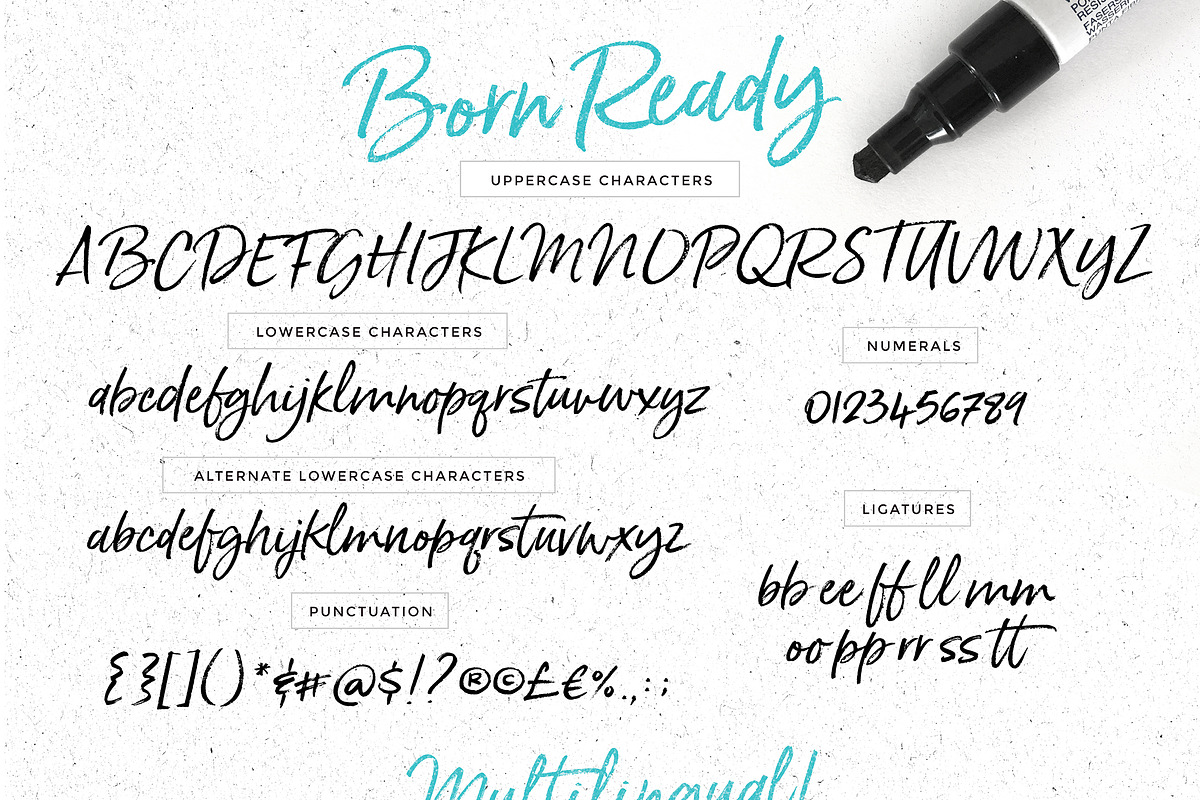 Born Ready
UPPERCASE CHARACTERS
ABCDEFGHIJKLMNOPQRSTUVWXYZ
LOWERCASE CHARACTERS
abcdefghijklmnopqrstuvwxyz
NUMERALS
0123456789
ALTERNATE LOWERCASE CHARACTERS
abcdefghijklmnopqrstuvwxyz
LIGATURES
bb ee ff ll mm
oo pp rr ss tt
PUNCTUATION
{}[]()*&#@$!?®©£€%.,:;
Multilingual!